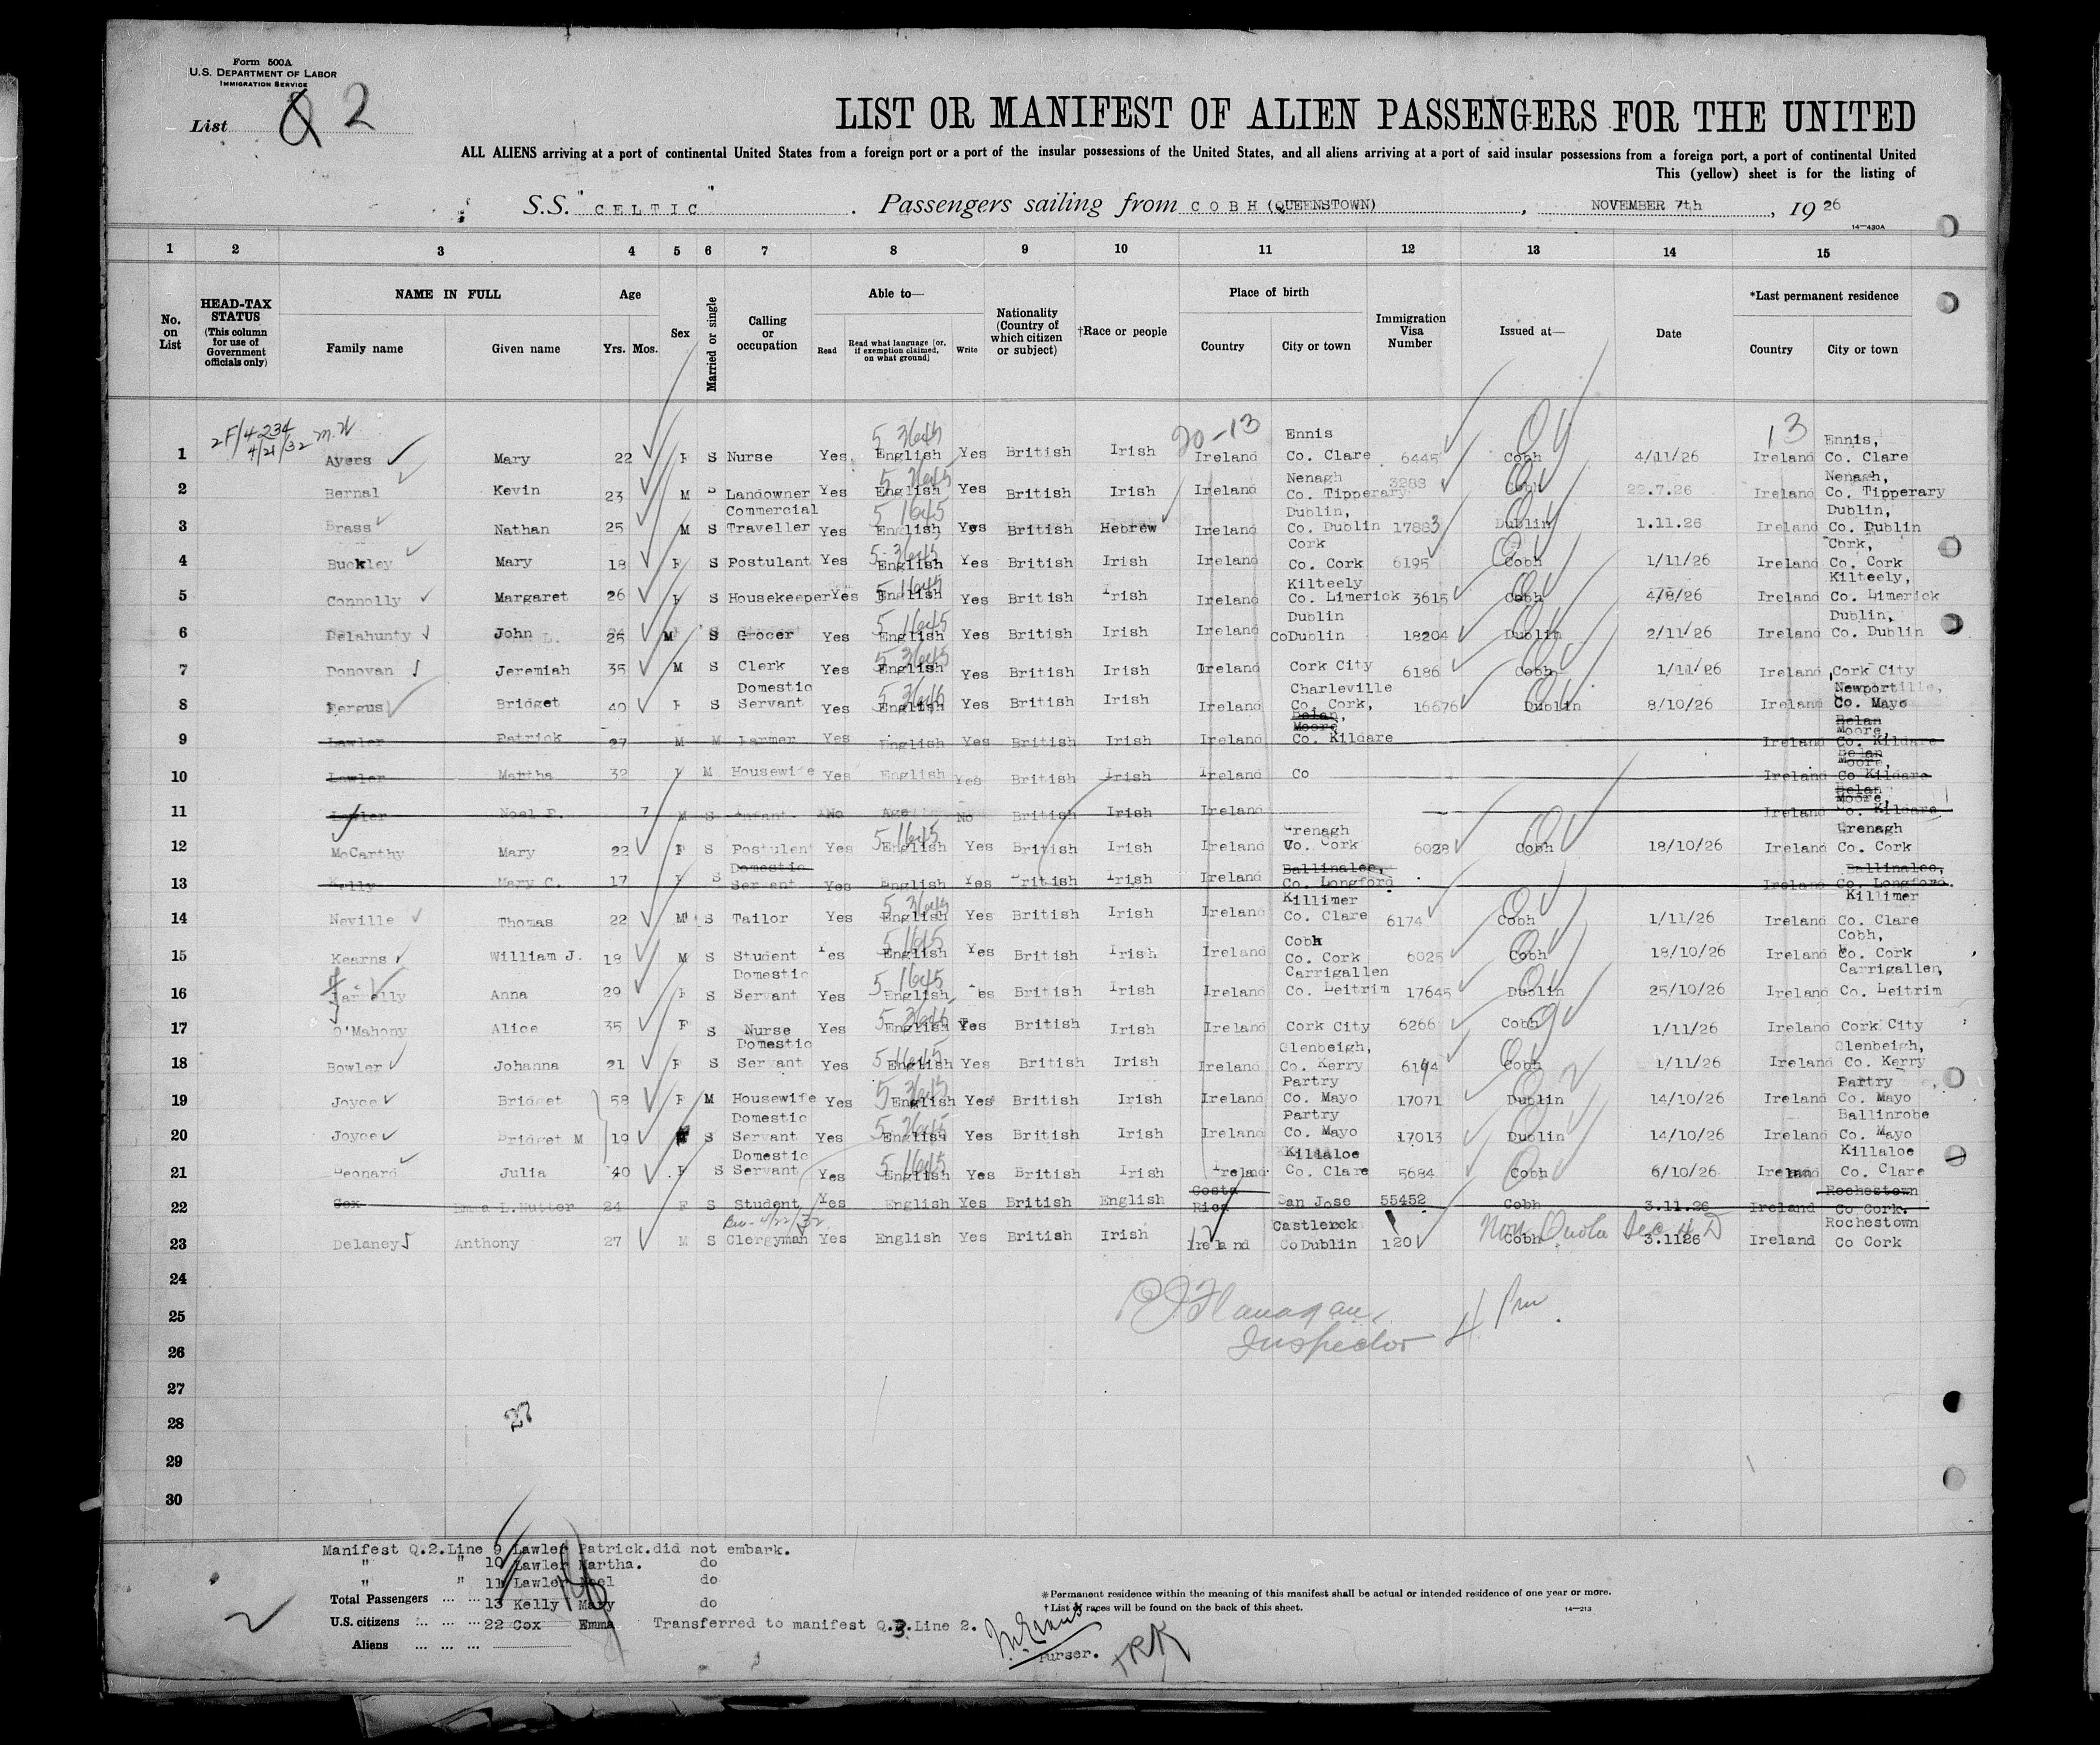 Form 500A
U.S. DEPARTMENT OF LABOR
IMMIGRATION SERVICE
List 2
LIST OR MANIFEST OF ALIEN PASSENGERS FOR THE UNITED
ALL ALIENS arriving at a port of continental United States from a foreign port or a port of the insular possessions of the United States, and all aliens arriving at a port of said insular possessions from a foreign port, a port of continental United
This (yellow) sheet is for the listing of
S.S. "CELTIC". Passengers sailing from COBH (QUEENSTOWN), NOVEMBER 7th, 1926
14—430A
1 2 3 4 5 6 7 8 9 10 11 12 13 14 15
No. on List
HEAD-TAX STATUS (This column for use of Government officials only)
NAME IN FULL Family name Given name
Age Yrs. Mos.
Sex
Married or single
Calling or occupation
Able to— Read Read what language (or, if exemption claimed, on what ground) Write
Nationality (Country of which citizen or subject)
†Race or people
Place of birth Country City or town
Immigration Visa Number
Issued at—
Date
*Last permanent residence Country City or town
2F/4234 4/21/32 20-13 13
1 Ayers Mary 22 F S Nurse Yes English Yes British Irish Ireland Ennis Co. Clare 6445 Cobh 4/11/26 Ireland Ennis, Co. Clare
2 Bernal Kevin 23 M S Landowner Yes English Yes British Irish Ireland Nenagh Co. Tipperary 3283 Cobh 22.7.26 Ireland Nenagh, Co. Tipperary
3 Brass Nathan 25 M S Commercial Traveller Yes English Yes British Hebrew Ireland Dublin, Co. Dublin 17883 Dublin 1.11.26 Ireland Dublin, Co. Dublin
4 Buckley Mary 18 F S Postulant Yes English Yes British Irish Ireland Cork Co. Cork 6195 Cobh 1/11/26 Ireland Cork, Co. Cork
5 Connolly Margaret 26 F S Housekeeper Yes English Yes British Irish Ireland Kilteely Co. Limerick 3615 Cobh 4/8/26 Ireland Kilteely, Co. Limerick
6 Delahunty John L. 25 M S Grocer Yes English Yes British Irish Ireland Dublin Co Dublin 18204 Dublin 2/11/26 Ireland Dublin, Co. Dublin
7 Donovan Jeremiah 35 M S Clerk Yes English Yes British Irish Ireland Cork City 6186 Cobh 1/11/26 Ireland Cork City
8 Fergus Bridget 40 F S Domestic Servant Yes English Yes British Irish Ireland Charleville Co. Cork, 16676 Dublin 8/10/26 Ireland Newport Co. Mayo
9 Lawler Patrick 27 M M Farmer Yes English Yes British Irish Ireland Belan, Moore Co. Kildare Ireland Belan Moore, Co. Kildare
10 Lawler Martha 32 F M Housewife Yes English Yes British Irish Ireland Co Ireland Belan Moore, Co Kildare
11 Lawler Noel P. 7 M S Infant No Age No British Irish Ireland Ireland Belan Moore, Co. Kildare
12 McCarthy Mary 22 F S Postulent Yes English Yes British Irish Ireland Grenagh Co. Cork 6028 Cobh 18/10/26 Ireland Grenagh Co. Cork
13 Kelly Mary C. 17 F S Domestic Servant Yes English Yes British Irish Ireland Ballinalee, Co. Longford Ireland Ballinalee, Co. Longford.
14 Neville Thomas 22 M S Tailor Yes English Yes British Irish Ireland Killimer Co. Clare 6174 Cobh 1/11/26 Ireland Killimer Co. Clare
15 Kearns William J. 19 M S Student Yes English Yes British Irish Ireland Cobh Co. Cork 6025 Cobh 18/10/26 Ireland Cobh, Co. Cork
16 Farrelly Anna 29 F S Domestic Servant Yes English Yes British Irish Ireland Carrigallen Co. Leitrim 17645 Dublin 25/10/26 Ireland Carrigallen, Co. Leitrim
17 O'Mahony Alice 35 F S Nurse Yes English Yes British Irish Ireland Cork City 6266 Cobh 1/11/26 Ireland Cork City
18 Bowler Johanna 21 F S Domestic Servant Yes English Yes British Irish Ireland Glenbeigh, Co. Kerry 6194 Cobh 1/11/26 Ireland Glenbeigh, Co. Kerry
19 Joyce Bridget 58 F M Housewife Yes English Yes British Irish Ireland Partry Co. Mayo 17071 Dublin 14/10/26 Ireland Partry Co. Mayo
20 Joyce Bridget M 19 S Domestic Servant Yes English Yes British Irish Ireland Partry Co. Mayo 17013 Dublin 14/10/26 Ireland Ballinrobe Co. Mayo
21 Leonard Julia 40 F S Domestic Servant Yes English Yes British Irish Ireland Killaloe Co. Clare 5684 Cobh 6/10/26 Ireland Killaloe Co. Clare
22 Cox Emma L. Nutter 24 F S Student Yes English Yes British English Costa Rica San Jose 55452 Cobh 3.11.26 Ireland Rochestown Co Cork.
23 Delaney Anthony 27 M S Clergyman Yes English Yes British Irish Ireland Castlerck Co Dublin 120 Cobh 3.1126 Ireland Rochestown Co Cork
Non Quota Sec 4 D
24
25
26
27
28
29
30
Flanagan, Inspector 4 Pm
27
Manifest Q.2.Line 9 Lawler Patrick. did not embark.
" " 10 Lawler Martha. do
" " 11 Lawler Noel do
Total Passengers
13 Kelly Mary do
U.S. citizens
22 Cox Emma Transferred to manifest Q.3.Line 2.
Aliens
Purser.
*Permanent residence within the meaning of this manifest shall be actual or intended residence of one year or more.
†List of races will be found on the back of this sheet. 14—213